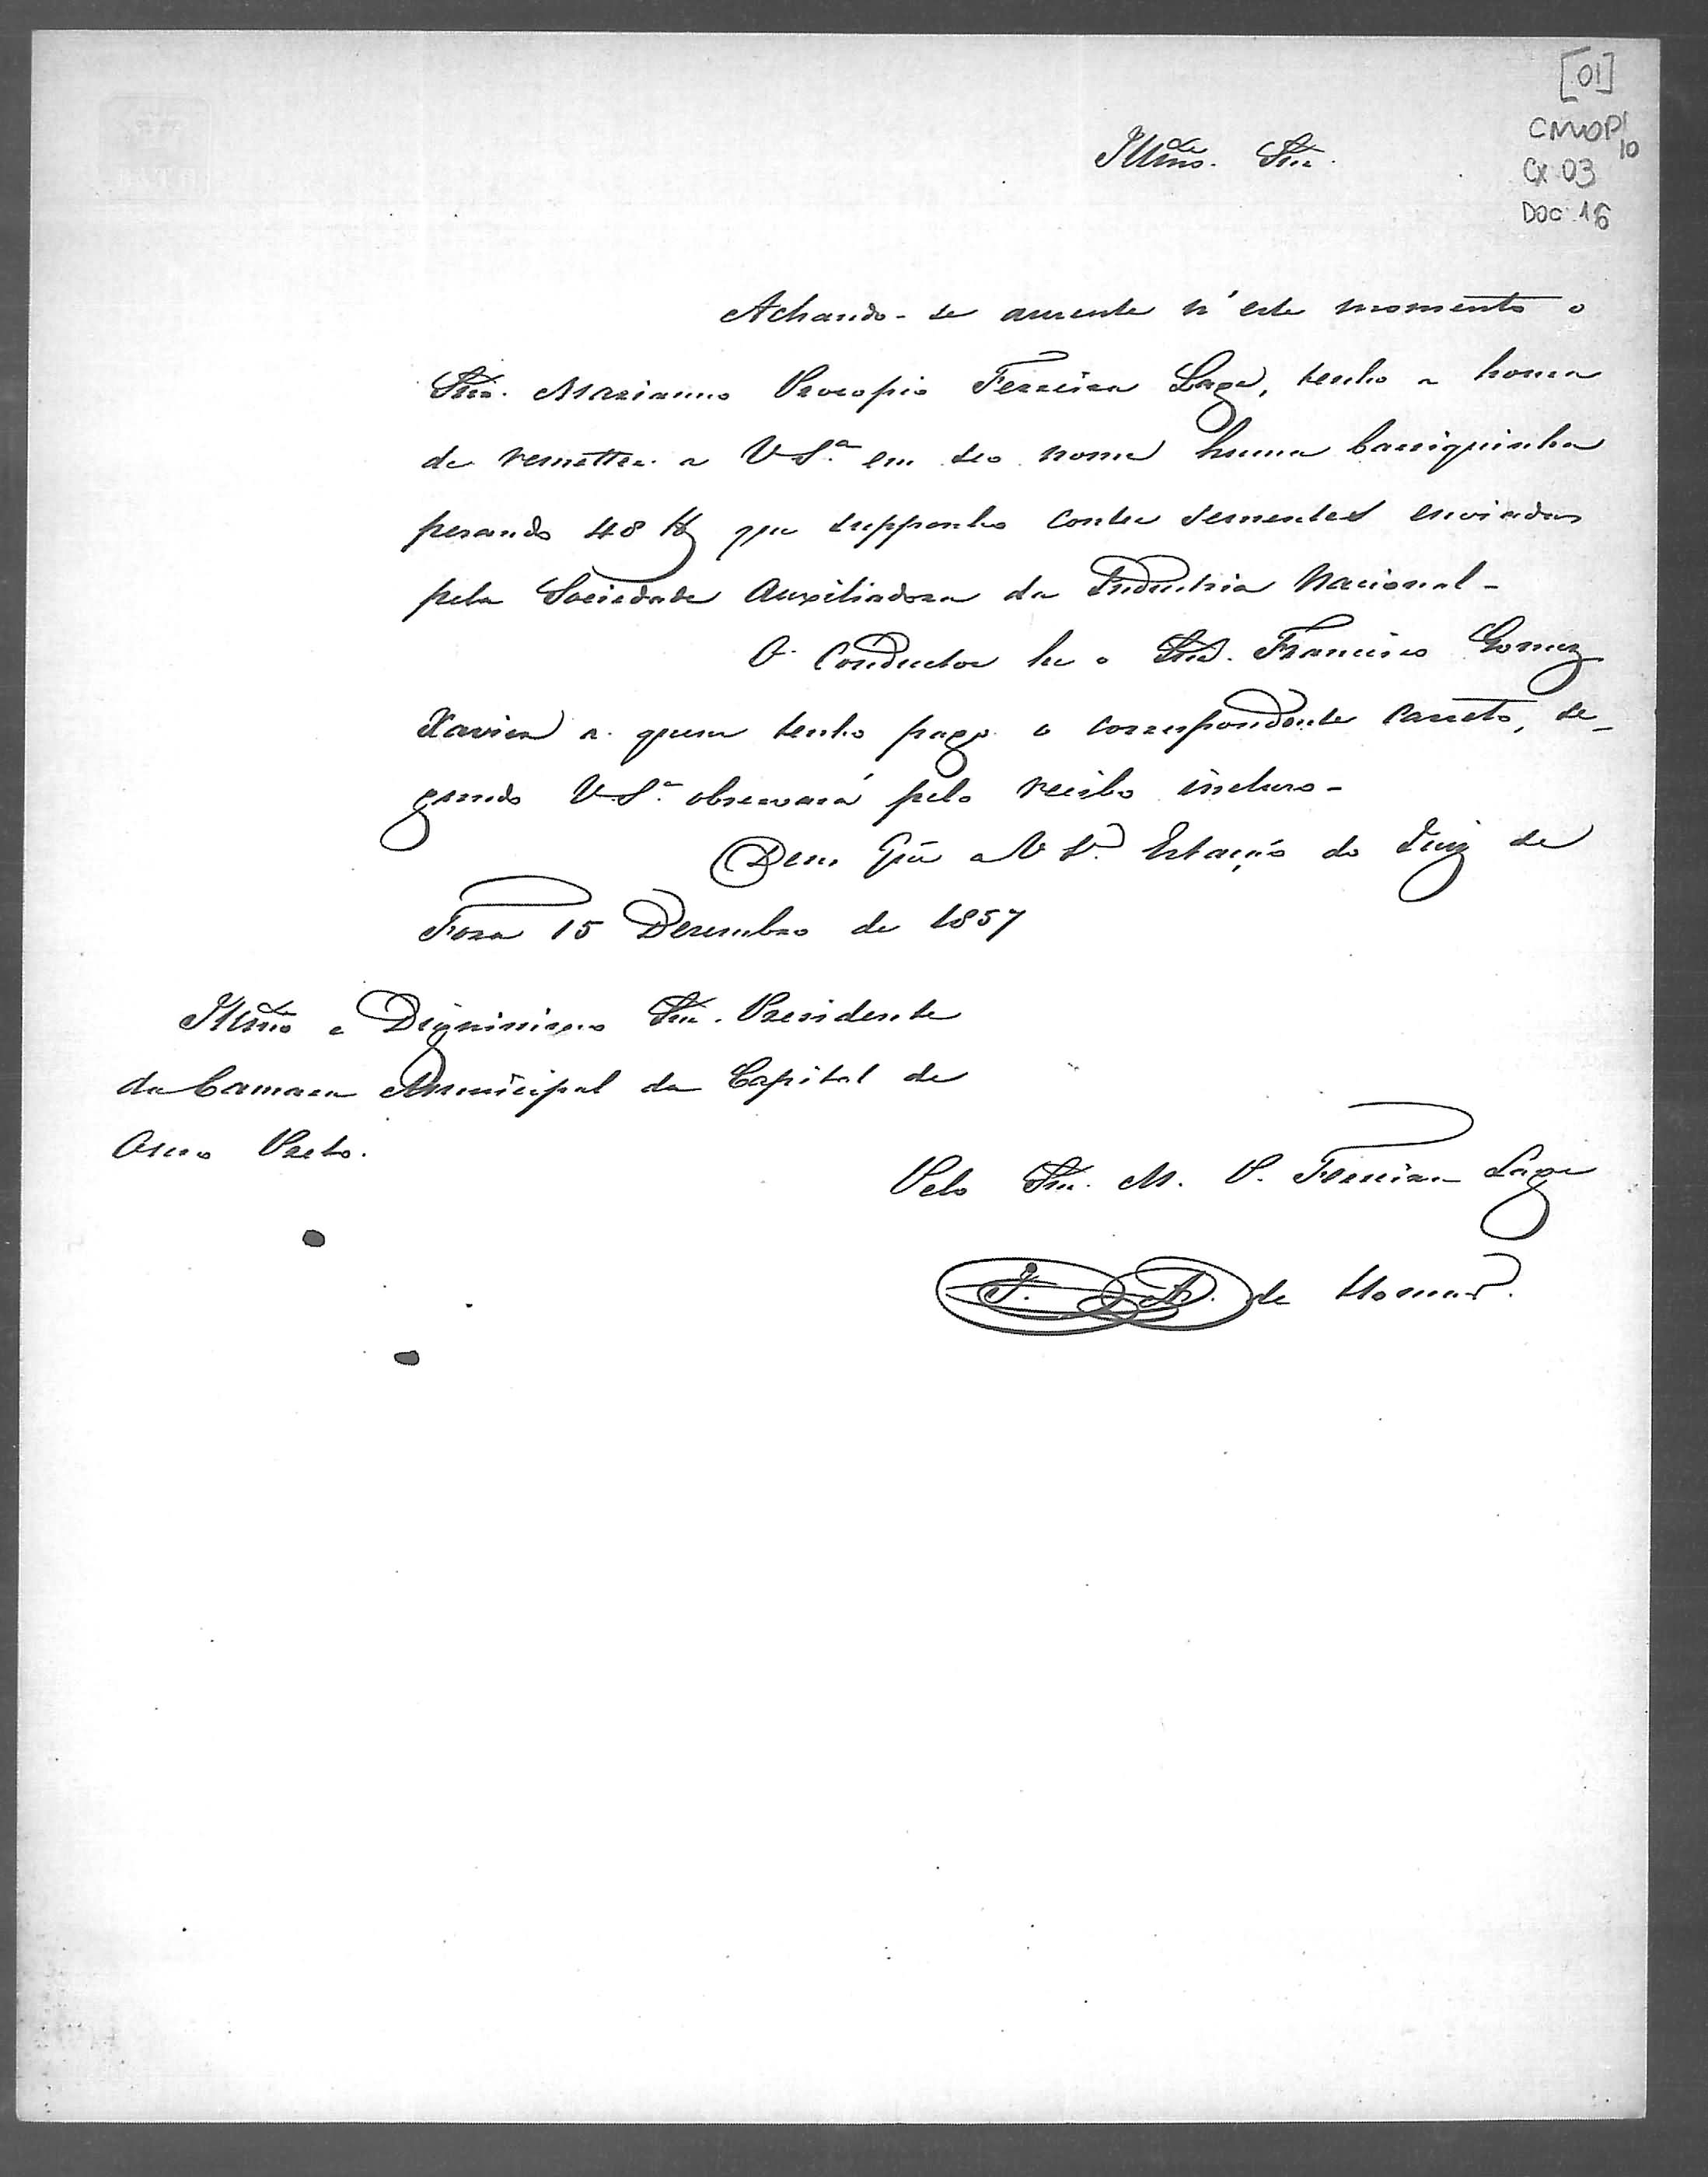 [01]
CMOP 1/10
CX. 03
DOC. 16
Illmo. Snr.
Achando-se ausente n'este momento o
Snr. Marianno Procopio Ferreira Lage, tenho a honra
de remetter a V. S.ª em seo nome huma barriquinha
pesando 48 lb que supponho conter sementes enviadas
pela Sociedade Auxiliadora da Industria Nacional -
O Conductor he o Snr. Francisco Gomez
Xavier a quem tenho pago o correspondente carreto, se-
gundo V. S.ª observará pelo recibo incluso -
Deus Gde a V. S.ª Estação do Juiz de
Fora 15 Dezembro de 1857
Illmo e Dignissimo Snr. Presidente
da Camara Municipal da Capital de
Ouro Preto.
Pelo Snr. M. P. Ferreira Lage
J. A. de